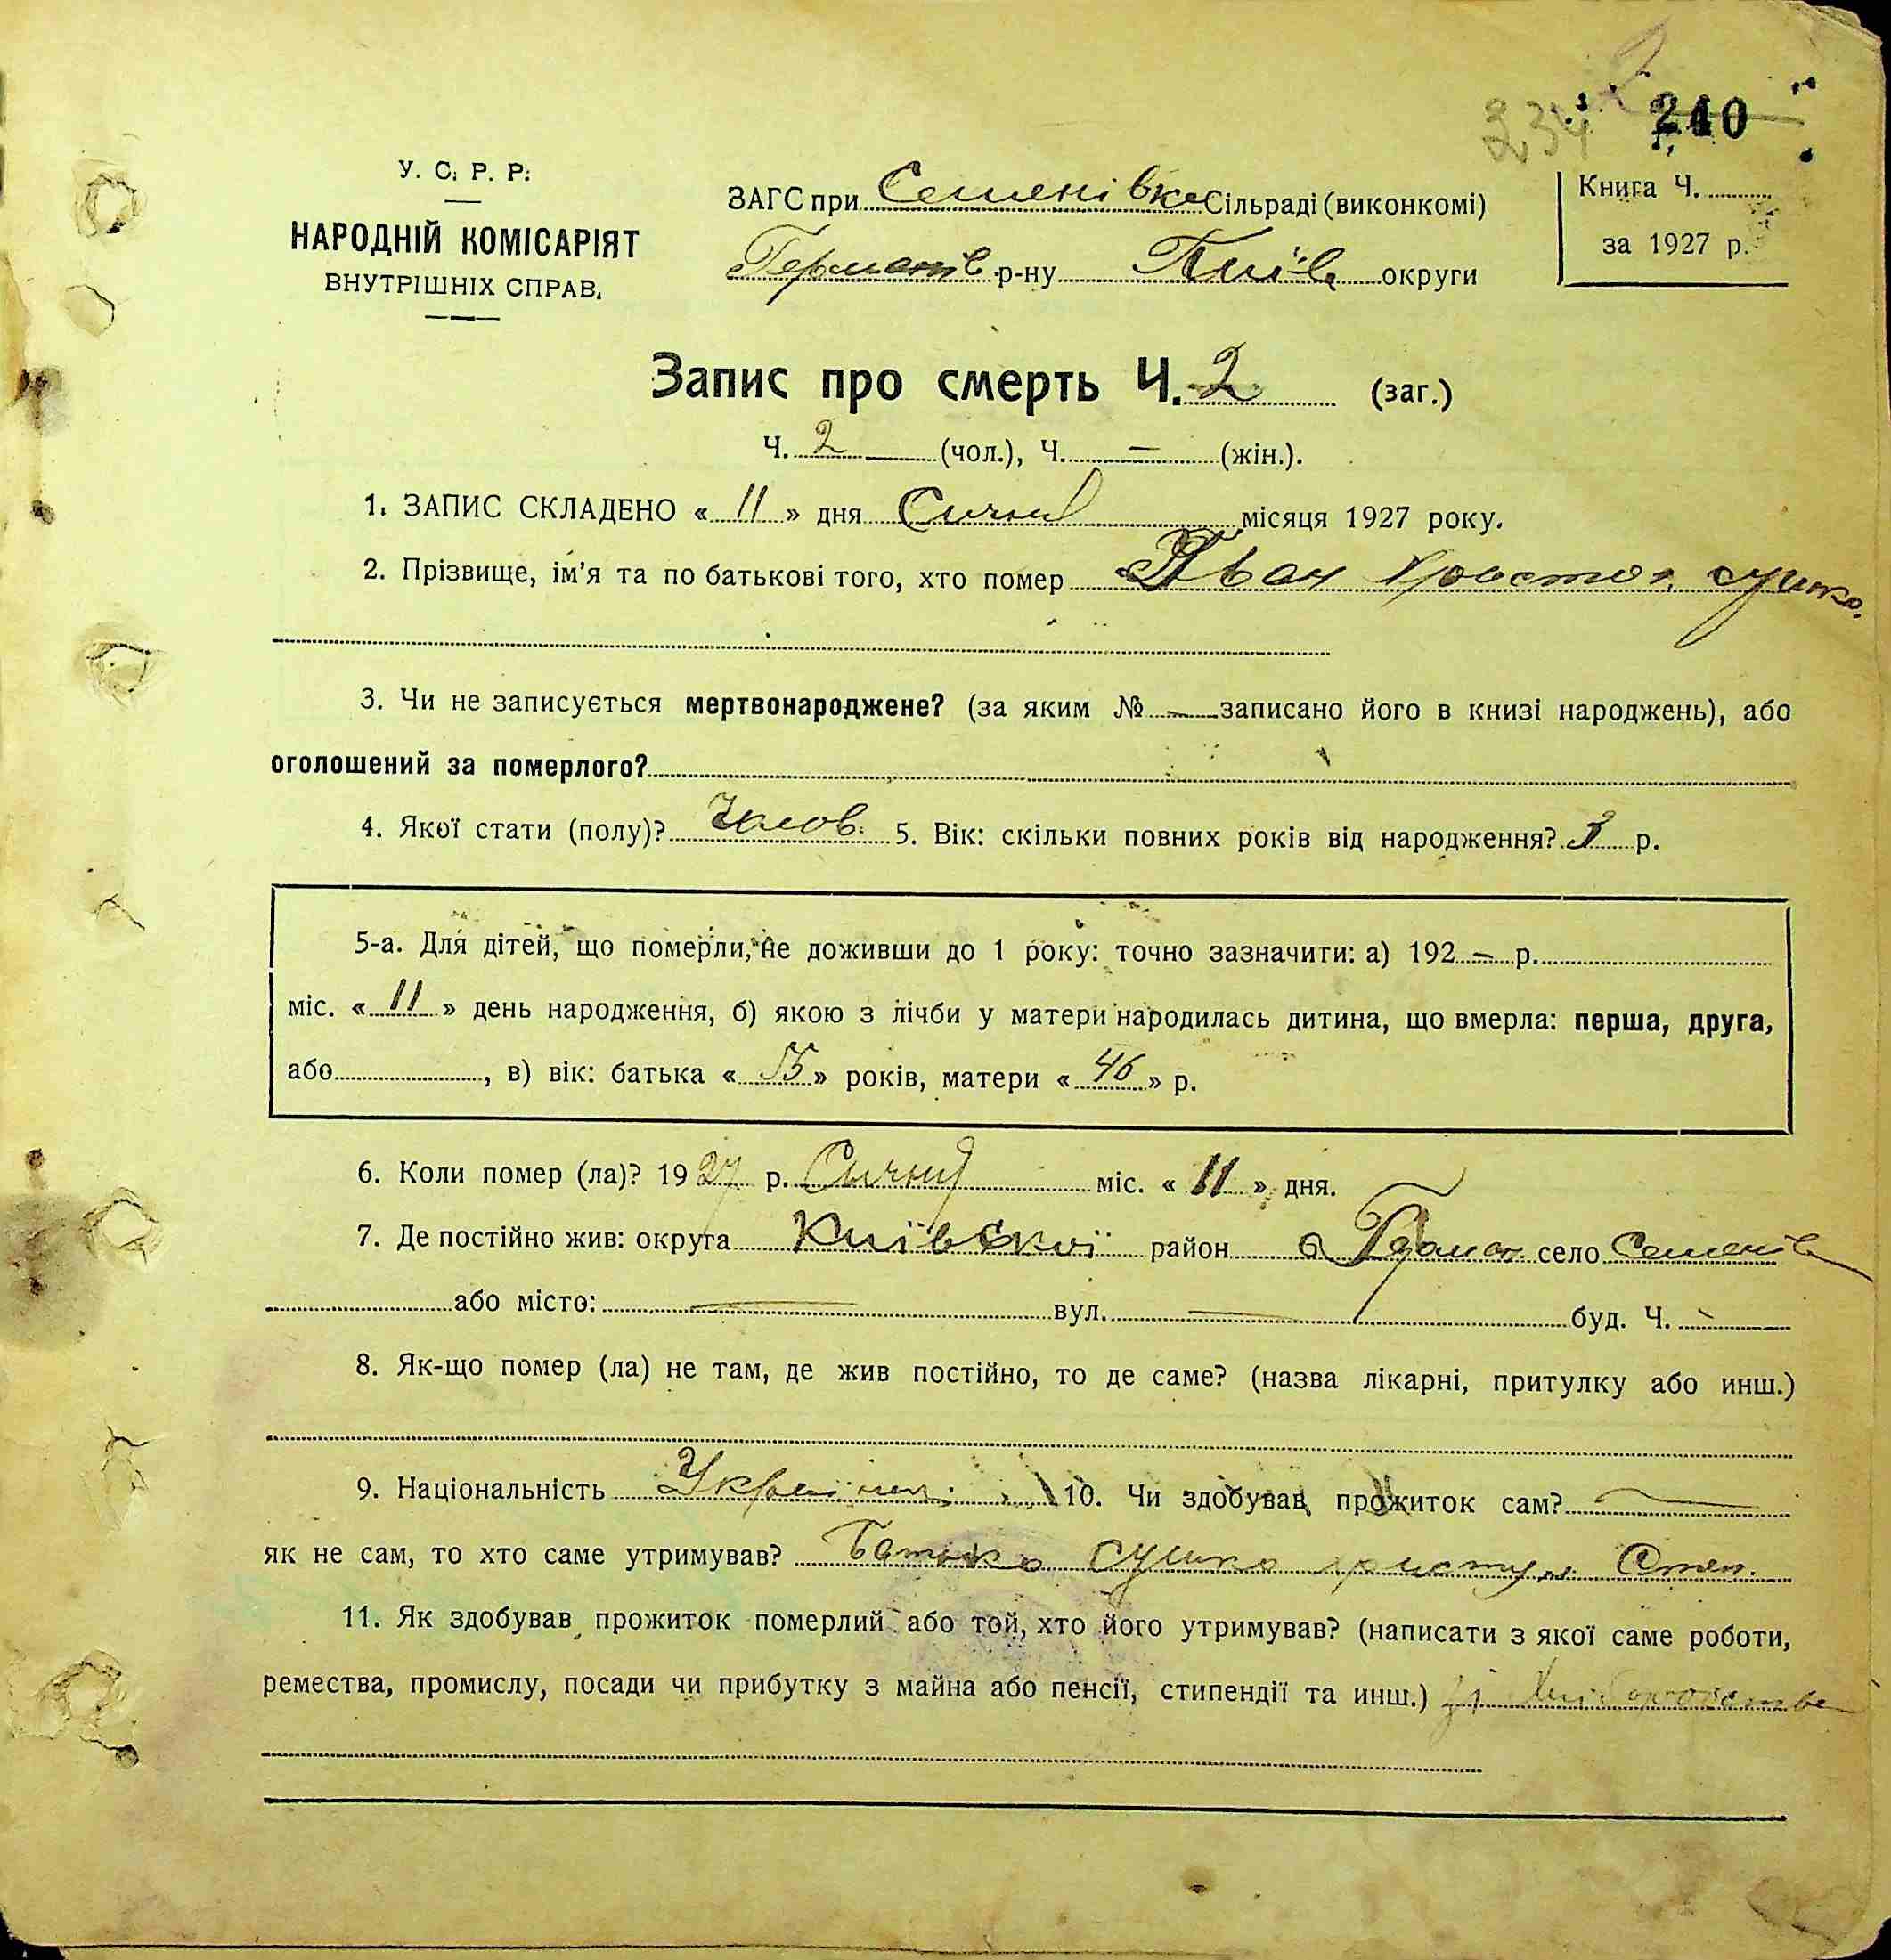 234 240
У. С. Р. Р.
НАРОДНІЙ КОМІСАРІЯТ
ВНУТРІШНІХ СПРАВ.
ЗАГС при Семенівке Сільраді (виконкомі)
Германів р-ну Київ округи
Книга Ч.
за 1927 р.
Запис про смерть Ч. 2 (заг.)
Ч. 2 — (чол.), Ч. — (жін.).
1. ЗАПИС СКЛАДЕНО « 11 » дня Січня місяця 1927 року.
2. Прізвище, ім'я та по батькові того, хто помер Іван Христоф. Сушко.
3. Чи не записується мертвонароджене? (за яким № — записано його в книзі народжень), або
оголошений за померлого?
4. Якої стати (полу)? Чолов. 5. Вік: скільки повних років від народження? 3 р.
5-а. Для дітей, що померли, не доживши до 1 року: точно зазначити: а) 192 – р.
міс. « 11 » день народження, б) якою з лічби у матери народилась дитина, що вмерла: перша, друга,
або , в) вік: батька « » років, матери « 46 » р.
6. Коли помер (ла)? 1927 р. Січня міс. « 11 » дня.
7. Де постійно жив: округа Київської район село Семенів
або місто: — вул. — буд. Ч. –
8. Як-що помер (ла) не там, де жив постійно, то де саме? (назва лікарні, притулку або инш.)
9. Національність Україн. 10. Чи здобував прожиток сам? —
як не сам, то хто саме утримував? Батько Сушко Степ.
11. Як здобував прожиток померлий або той, хто його утримував? (написати з якої саме роботи,
ремества, промислу, посади чи прибутку з майна або пенсії, стипендії та инш.) зі